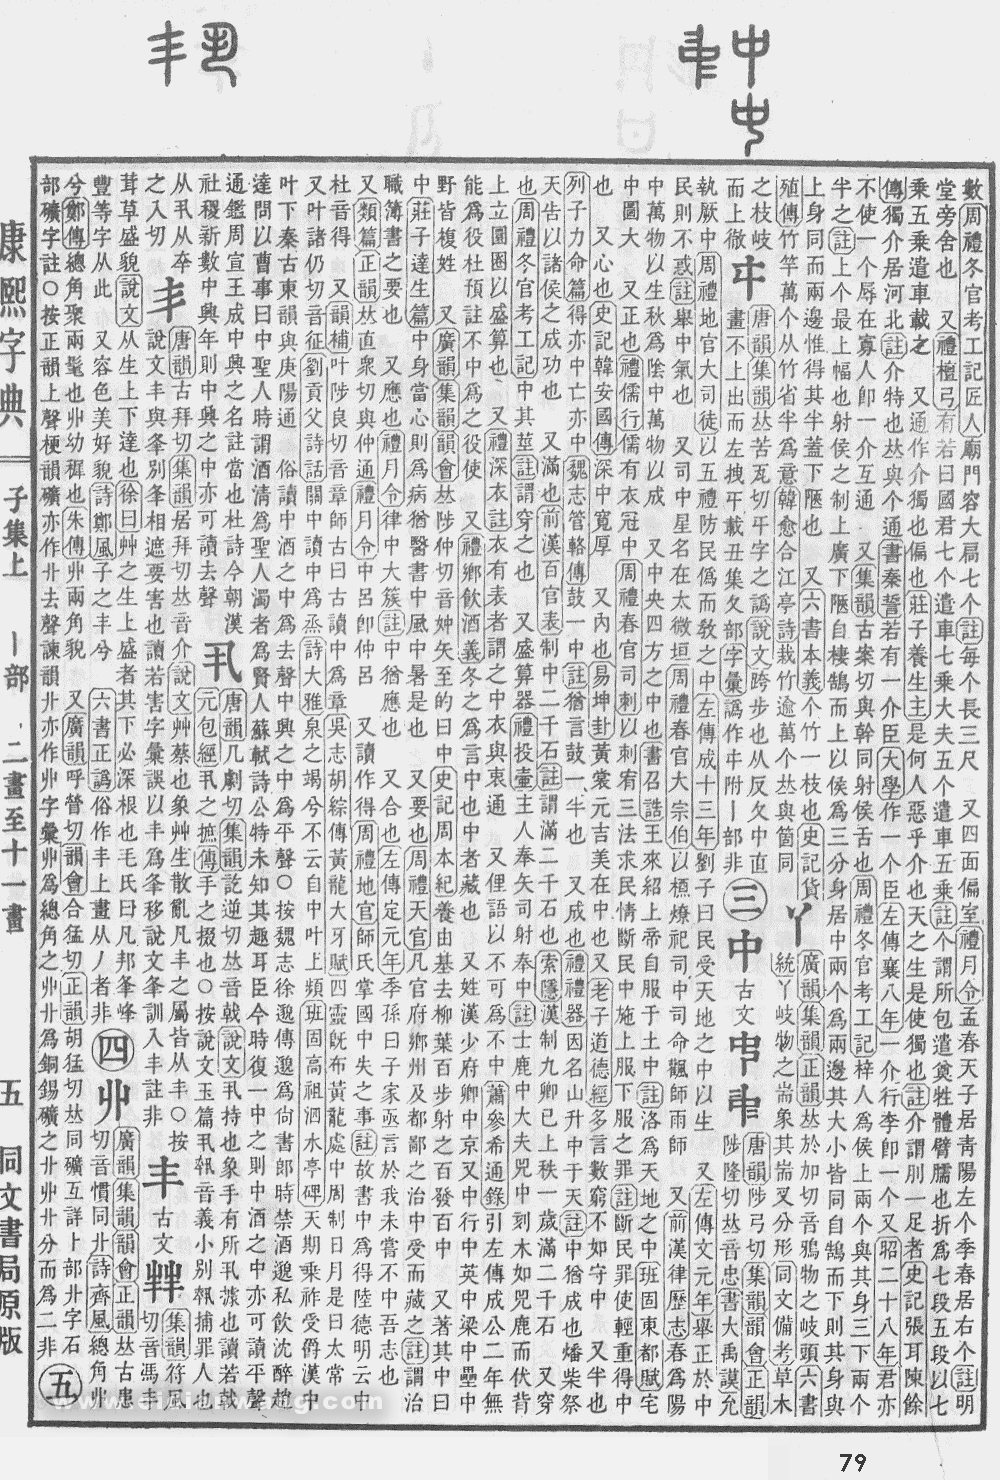 康熙字典
子集上 丨部 二畫至十一畫
五 同文書局原版
數周禮冬官考工記匠人廟門容大扃七个註每个長三尺 又四面偏室禮月令孟春天子居靑陽左个季春居右个註明
堂旁舍也 又禮檀弓有若曰國君七个遣車七乘大夫五个遣車五乘註个謂所包遣奠牲體臂臑也折爲七段五段以七
乘五乘遣車載之 又通作介獨也偏也莊子養生主是何人惡乎介也天之生是使獨也註介謂刖一足者史記張耳陳餘
傳獨介居河北註介特也𠀤與个通書秦誓若有一介臣大學作一个臣左傳襄八年一介行李卽一个又昭二十八年君亦
不使一个辱在寡人卽一介互通 又集韻古案切與幹同射侯舌也周禮冬官考工記梓人爲侯上兩个與其身三下兩个
半之註上个最上幅也射侯之制上廣下陿自棲鵠而上以侯爲三分身居中兩个爲兩邊其大小皆同自鵠而下則其身與
上身同而兩邊惟得其半蓋下陿也 又六書本義个竹一枝也史記貨
殖傳竹竿萬个从竹省半爲意韓愈合江亭詩栽竹逾萬个𠀤與箇同
丫 廣韻集韻正韻𠀤於加切音鴉物之岐頭者六書
統丫岐物之耑象其耑叉分形同文備考草木
之枝岐
唐韻集韻𠀤苦瓦切㐄字之譌說文跨步也从反夊中直
而上徹
畫不上出而左拽㐄載丑集夊部字彙譌作㐄附丨部非
三
中 古文
唐韻陟弓切集韻韻會正韻
陟隆切𠀤音忠書大禹謨允
執厥中周禮地官大司徒以五禮防民僞而敎之中左傳成十三年劉子曰民受天地之中以生 又左傳文元年舉正於中
民則不惑註舉中氣也 又司中星名在太微垣周禮春官大宗伯以槱燎祀司中司命觀師雨師 又前漢律歷志春爲陽
中萬物以生秋爲陰中萬物以成 又中央四方之中也書召誥王來紹上帝自服于土中註洛爲天地之中班固東都賦宅
中圖大 又正也禮儒行儒有衣冠中周禮春官司刺以刺宥三法求民情斷民中施上服下服之罪註斷民罪使輕重得中
也 又心也史記韓安國傳深中寬厚 又內也易坤卦黃裳元吉美在中也又老子道德經多言數窮不如守中 又半也
列子力命篇得亦中亡亦中魏志管輅傳鼓一中註猶言鼓一半也 又成也禮禮器因名山升中于天註中猶成也燔柴祭
天告以諸侯之成功也 又滿也前漢百官表制中二千石註謂滿二千石也索隱漢制九卿已上秩一歲滿二千石 又穿
也周禮冬官考工記中其莖註謂穿之也 又盛算器禮投壷主人奉矢司射奉中註士鹿中大夫兕中刻木如兕鹿而伏背
上立圓圈以盛算也 又禮深衣註衣有表者謂之中衣與衷通 又俚語以不可爲不中蕭參希通錄引左傳成公二年無
能爲役杜預註不中爲之役使 又禮鄕飮酒義冬之爲言中也中者藏也 又姓漢少府卿中京又中行中英中梁中壘中
野皆複姓 又廣韻集韻韻會𠀤陟仲切音妕矢至的曰中史記周本紀養由基去柳葉百步射之百發百中 又著其中曰
中莊子達生篇中身當心則爲病猶醫書中風中暑是也 又要也周禮天官凡官府鄕州及都鄙之治中受而藏之註謂治
職簿書之要也 又應也禮月令律中大簇註中猶應也 又合也左傳定元年季孫曰子家亟言於我未嘗不中吾志也
又類篇正韻𠀤直衆切與仲通禮月令中呂卽仲呂 又讀作得周禮地官師氏掌國中失之事註故書中爲得陸德明云中
杜音得 又韻補叶陟良切音章師古曰古讀中爲章吳志胡綜傳黃龍大牙賦四靈旣布黃龍處中周制日月是曰太常
又叶諸仍切音征劉貢父詩話關中讀中爲烝詩大雅泉之竭兮不云自中叶上頻班固高祖泗水亭碑天期乘祚受爵漢中
叶下秦古東韻與庚陽通 俗讀中酒之中爲去聲中興之中爲平聲○按魏志徐邈傳邈爲尙書郎時禁酒邈私飮沈醉趙
達問以曹事曰中聖人時謂酒淸爲聖人濁者爲賢人蘇軾詩公特未知其趣耳臣今時復一中之則中酒之中亦可讀平聲
通鑑周宣王成中興之名註當也杜詩今朝漢
社稷新數中興年則中興之中亦可讀去聲
丮 唐韻几劇切集韻訖逆切𠀤音戟說文丮持也象手有所丮據也讀若戟
元包經丮之摭傳手之掇也○按說文玉篇丮瓡音義小别瓡捕罪人也
从丮从㚔
丯 唐韻古拜切集韻居拜切𠀤音介說文艸蔡也象艸生散亂凡丯之屬皆从丯○按
說文丯與夆別夆相遮要害也讀若害字彙誤以丯爲夆移說文夆訓入丯註非
丰 古文 集韻符風
之入切
切音馮丰
茸草盛貌說文从生上下達也徐曰艸之生上盛者其下必深根也毛氏曰凡邦夆峰
豐等字从此 又容色美好貌詩鄭風子之丰兮 六書正譌俗作丰上畫从丿者非
四
丱 廣韻集韻韻會正韻𠀤古患
切音慣同卝詩齊風總角丱
兮鄭傳總角聚兩髦也丱幼穉也朱傳丱兩角貌 又廣韻呼營切韻會合猛切正韻胡猛切𠀤同礦互詳上部卝字石
部礦字註○按正韻上聲梗韻礦亦作卝去聲諫韻卝亦作丱字彙丱爲總角之丱卝爲銅錫礦之卝丱卝分而爲二非
五
79